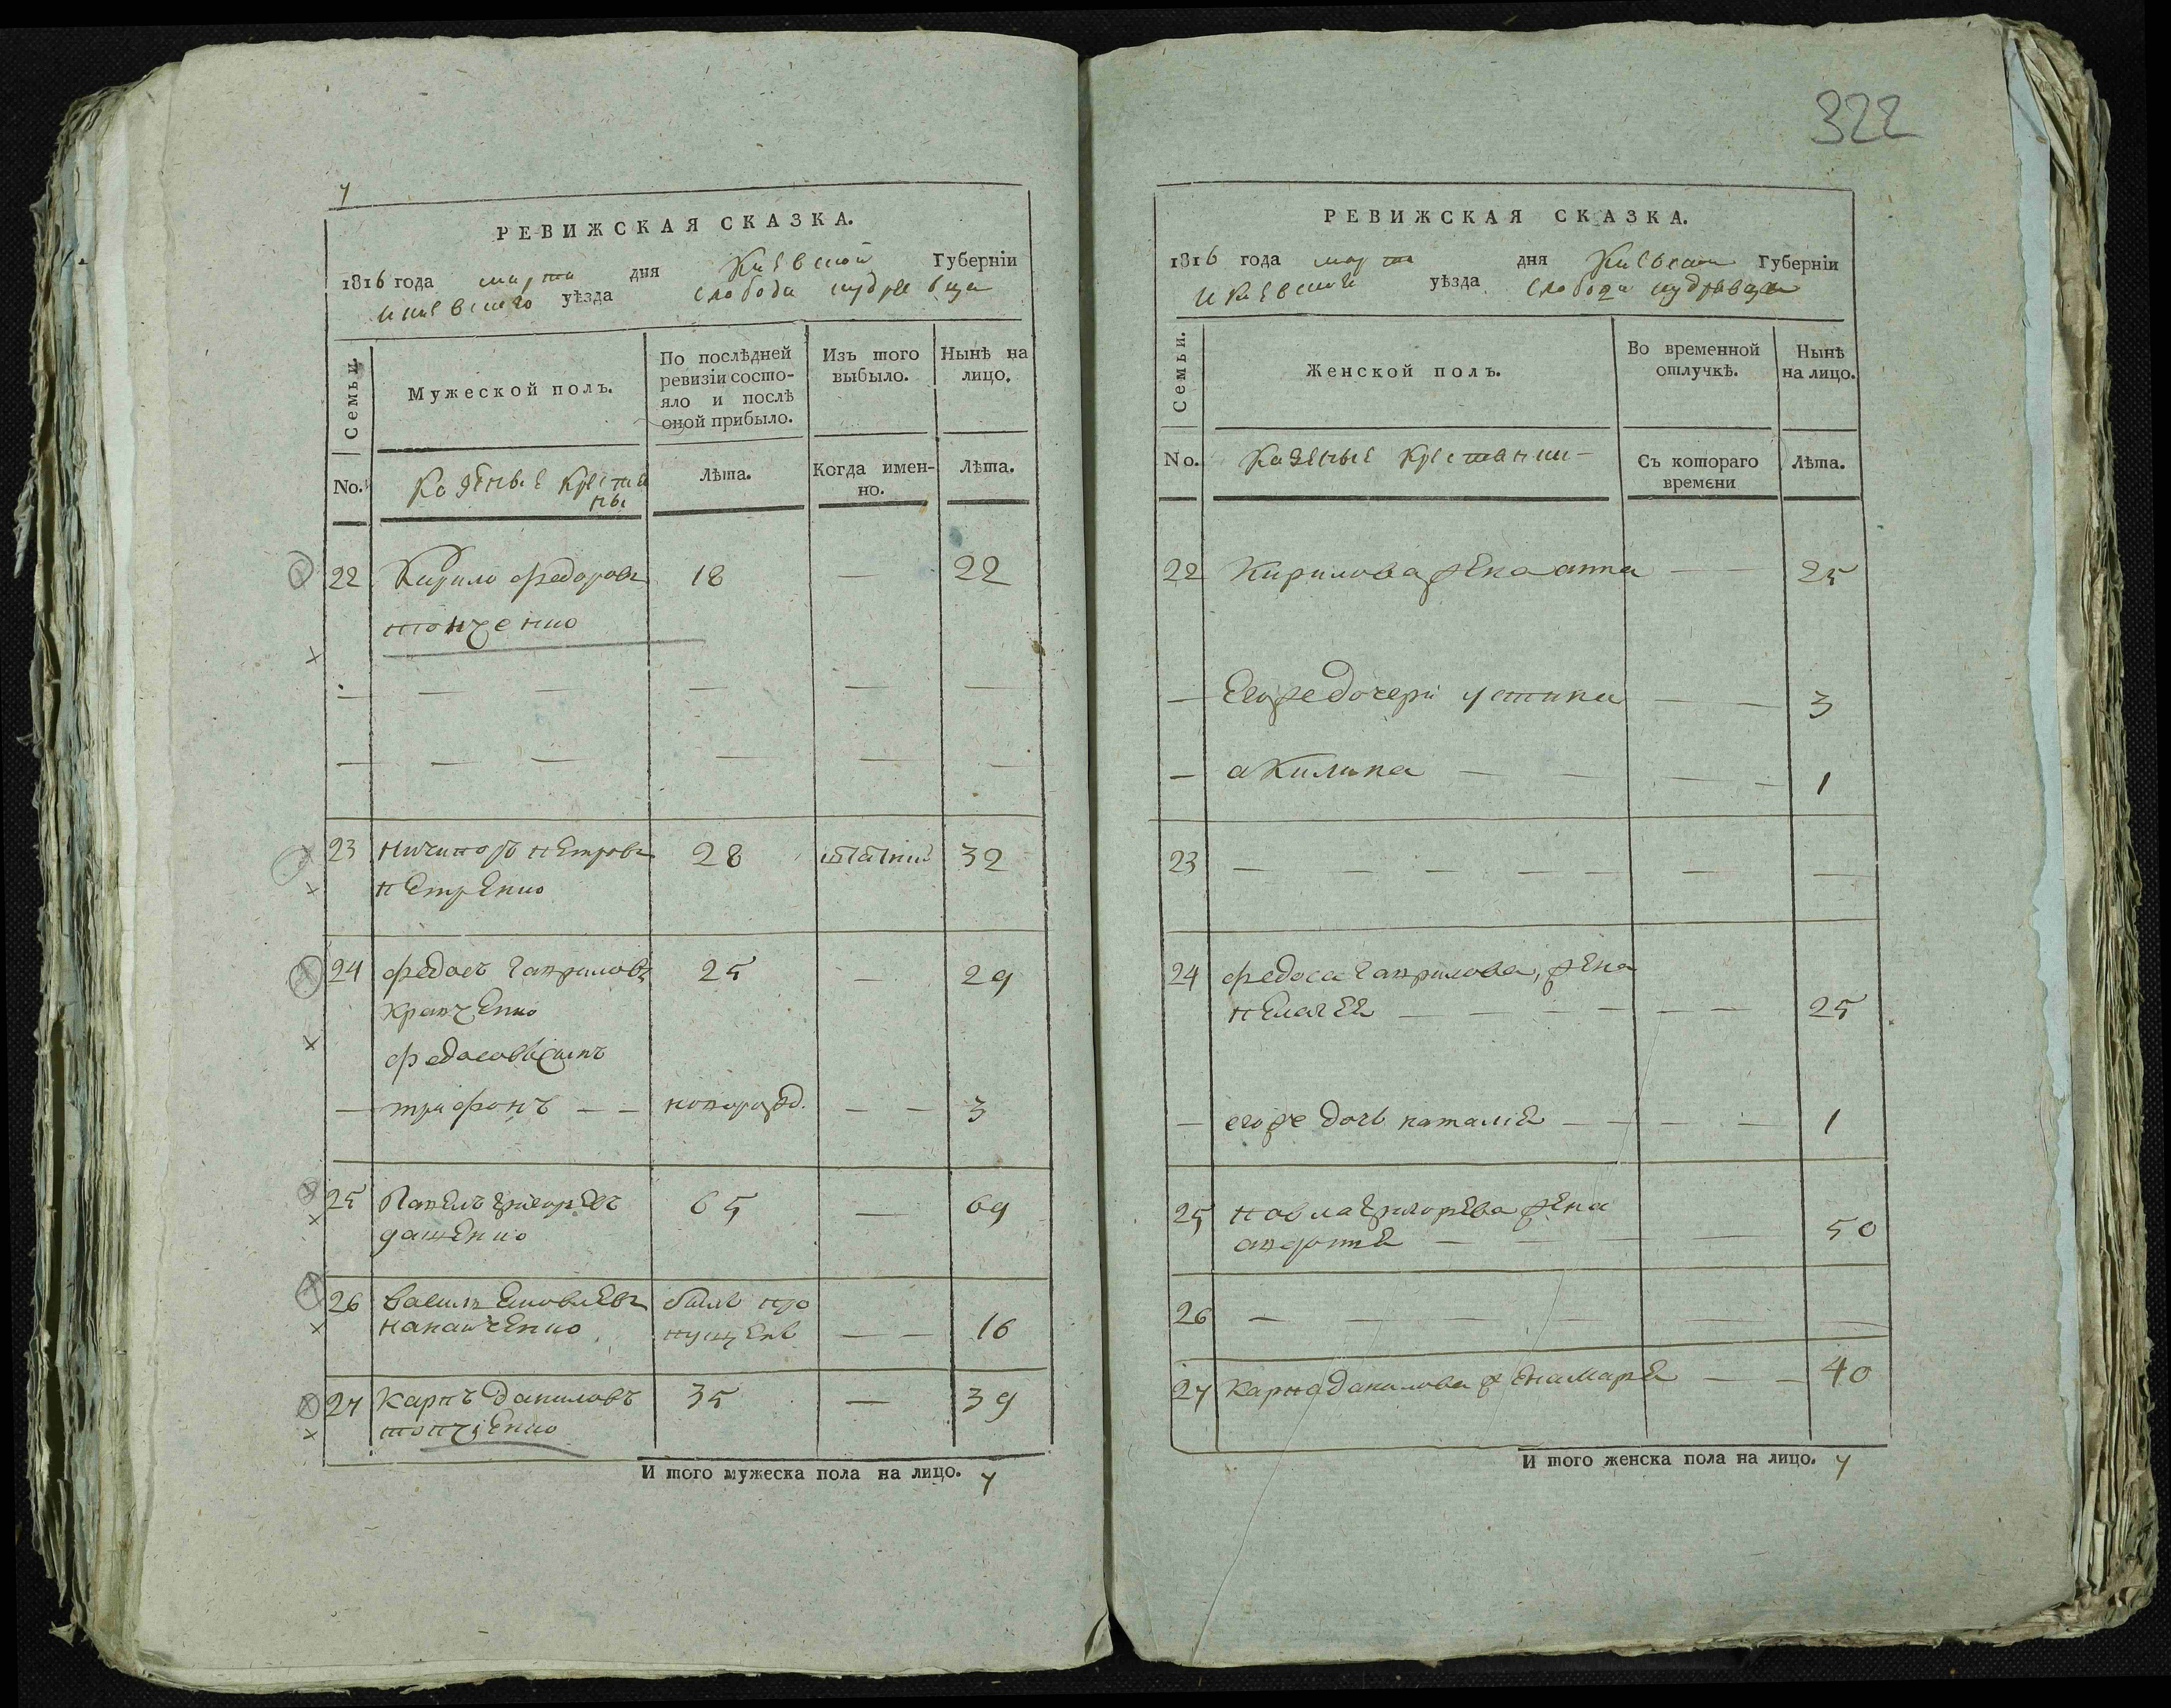 7
РЕВИЖСКАЯ СКАЗКА.
1816 года марта дня Киевской Губерніи
И Киевского уѣзда слобода кудрявца
Семьи.
Мужеской полъ.
По послѣдней ревизіи состояло и послѣ оной прибыло.
Изъ того выбыло.
Нынѣ на лицо.
No.
Казенные крестьяны
Лѣта.
Когда именно.
Лѣта.
22 Кирило федоровъ 18 — 22
топченко
— — — — — —
— — — — — —
23 Ничипоръ петровъ 28 32
петренко
24 федосъ гавриловъ 25 — 29
кравченко
федосовъ сынъ
— трифонъ — — новорожд. — — 3
25 Павелъ григорьевъ 65 — 69
дашенко
26 василь яковлевъ бывъ про
пущенъ — — 16
27 карпъ даниловъ 35 — 39
топченко
И того мужеска пола на лицо. 7
322
РЕВИЖСКАЯ СКАЗКА.
1816 года марта дня Киевской Губерніи
И Киевской уѣзда слобода кудрявца
Семьи.
Женской полъ.
Во временной отлучкѣ.
Нынѣ на лицо.
No.
Казенные крестянки
Съ котораго времени
Лѣта.
22 Кирилова жена анна — — 25
— Егоже дочери устина — — 3
— акилина — — — — 1
23 — — — — — — — —
24 федоса гаврилова жена
пелагея — — — — — — 25
— егоже дочь наталія — — — — 1
25 павла григорьева жена
авдотя — — — — 50
26 — — — — — — —
27 карпа данилова жена маря — — 40
И того женска пола на лицо. 7